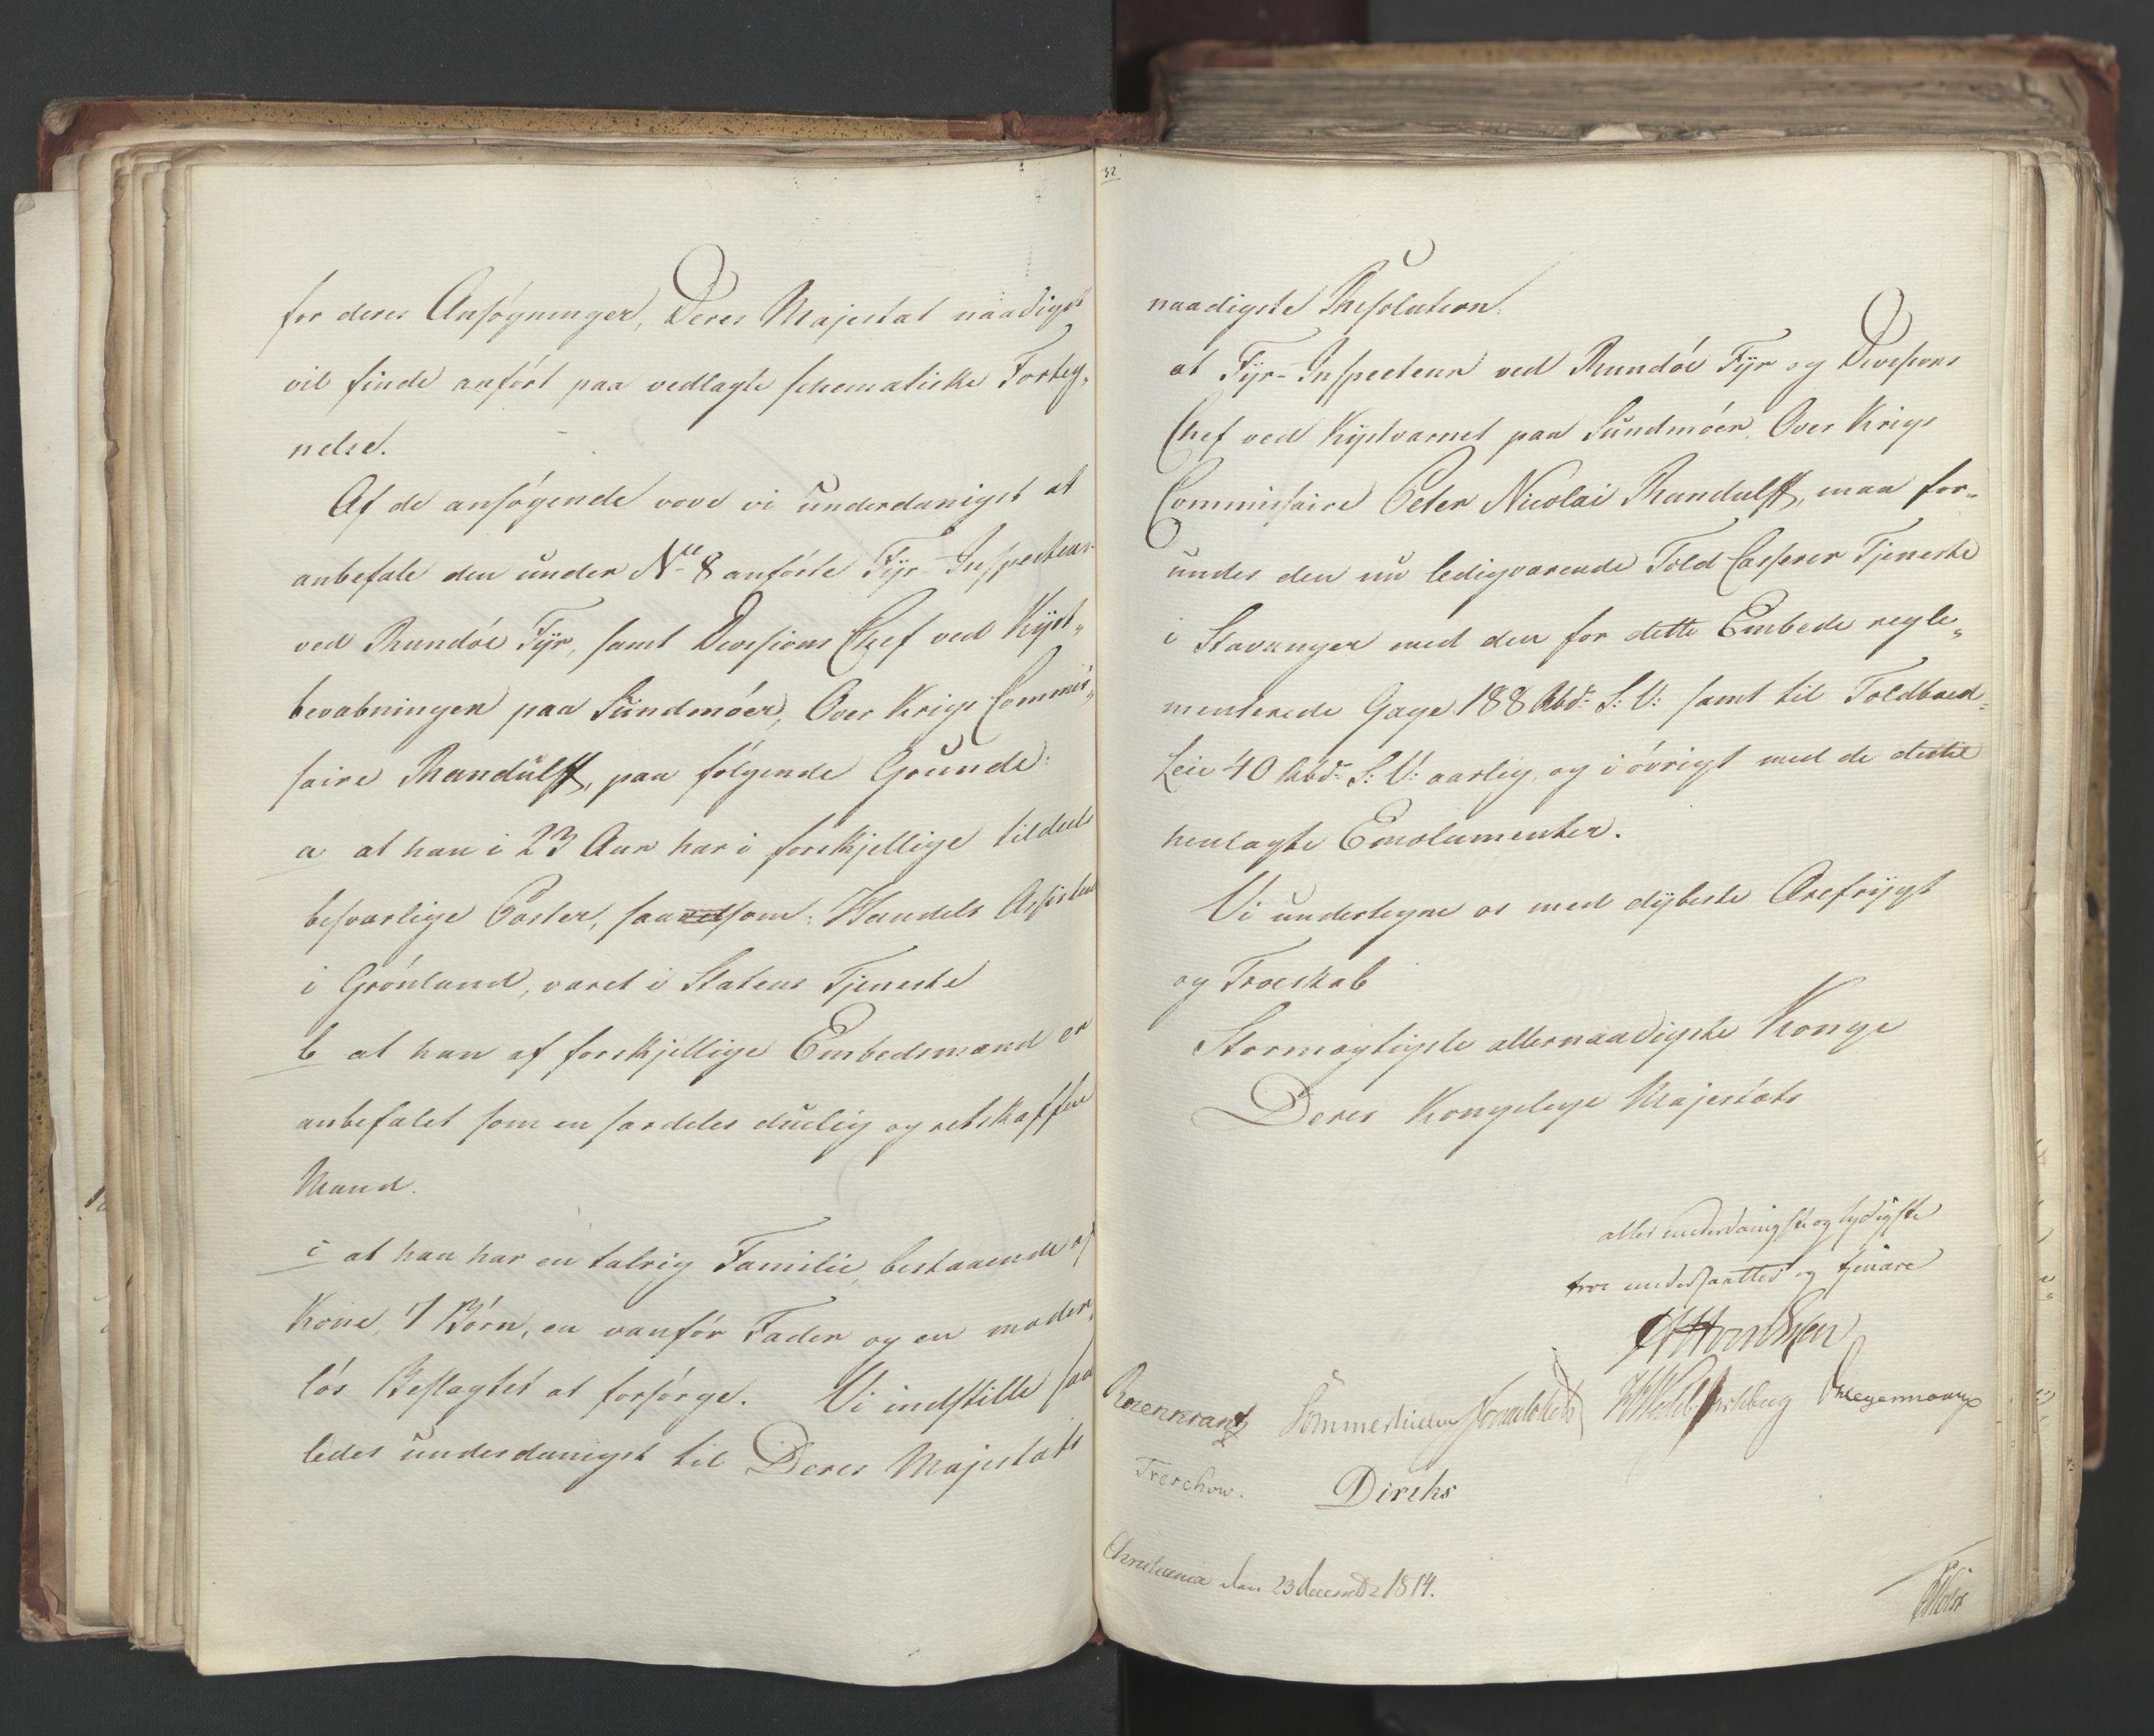 for deres Ansøgninger, Deres Majestæt naadigst
vil finde anført paa vedlagte schematiske Forteg„
nelse.
Af de ansøgende vove vi underdanigst at
anbefale den under No 8 anførte Fyr-Inspecteur
ved Rundøe Fyr, samt Divisions Chef ved Kyst„
bevæbningen paa Sundmöer, Over Krigs Commis„
saire Randulff, paa følgende Grunde:
a at han i 23 Aar har i forskjellige tildeels
besværlige Poster, saavelsom: Handels Assistent
i Grönland, været i Statens Tjeneste
b at han af forskjellige Embedsmænd er
anbefalet som en særdeles duelig og retskaffen
Mand.
c at han har en talrig Familie, bestaaende af
Kone, 7 Börn, en vanför Fader og en moder„
lös Beslægtet at forsörge. Vi indstille saa
ledes underdanigst til Deres Majestæts
32
naadigste Resolution:
at Fyr-Inspecteur ved Rundöe Fyr og Divisions
Chef ved Kystværnet paa Sundmöer, Over Krigs
Commissaire Peter Nicolai Randulff, maa for„
undes den nu ledigværende Told Casserer Tjeneste
i Stavanger med den for dette Embede regle„
menterede Gage 188 Rbd. S: V: samt til Toldboed„
Leie 40 Rbd. S: V: aarlig, og i övrigt med de dertil
henlagte Emolumenter.
Vi undertegne os med dybeste Ærefrygt
og Troeskab
Stormægtigste allernaadigste Konge
Deres Kongelige Majestæts
aller underdanigste og lydigste
troe undersaatter og tjenare
Rosenkrantz Sommerhielm HWedel Jarlsberg Hegermann
Treschow. Diriks
Christiania den 23 decembr 1814.